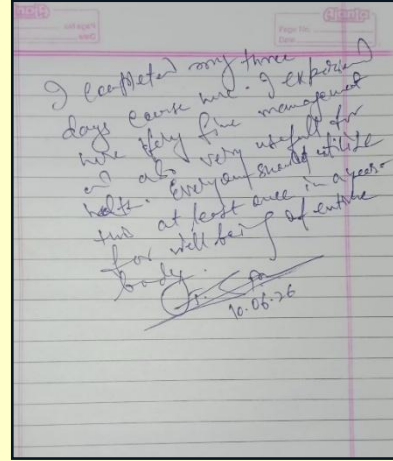 Page No.
Date
I completed my three
days course here. I experienced
here very fine management
and also very usefull for
health. Everyone should utilise
this at least once in a year
for well being of entire
body.
10.06.26